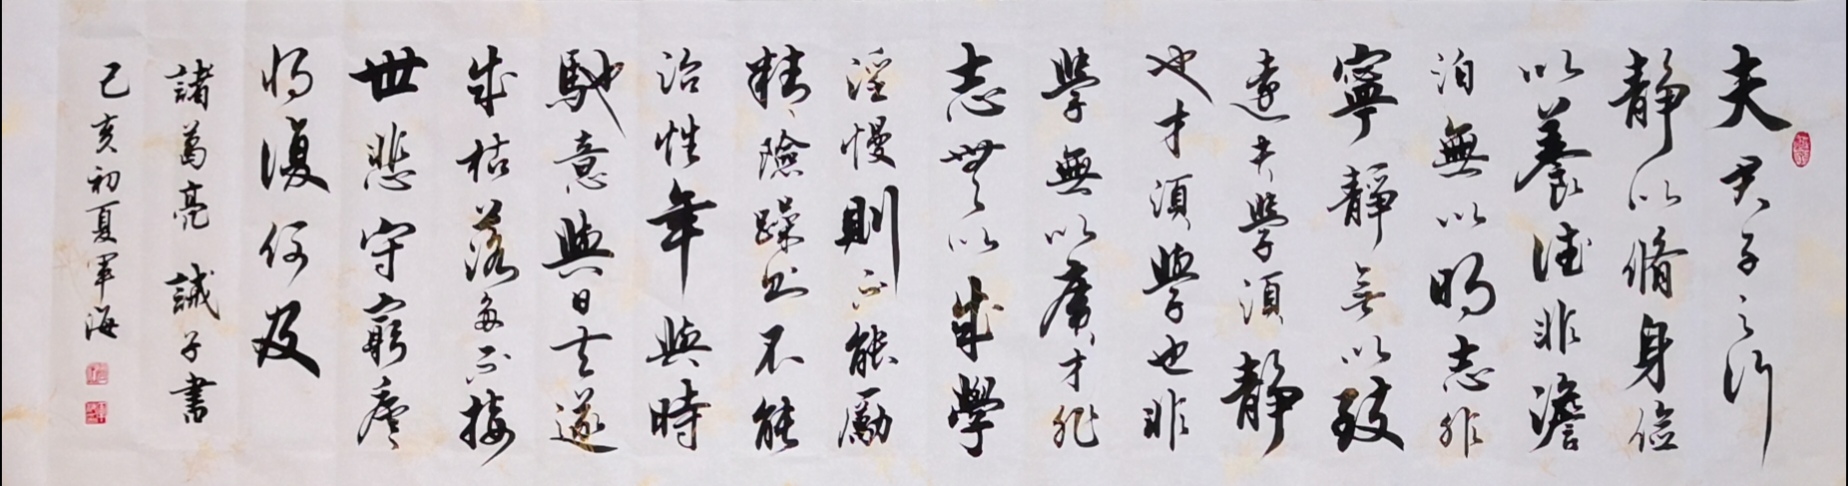 夫君子之行
静以脩身儉
以養德非澹
泊無以明志非
寧靜無以致
遠夫學須静
也才須學也非
學無以廣才非
志無以成學
淫慢則不能勵
精險躁則不能
治性年與時
馳意與日去遂
成枯落多不接
世悲守窮廬
將復何及
諸葛亮 誡子書
己亥初夏軍海